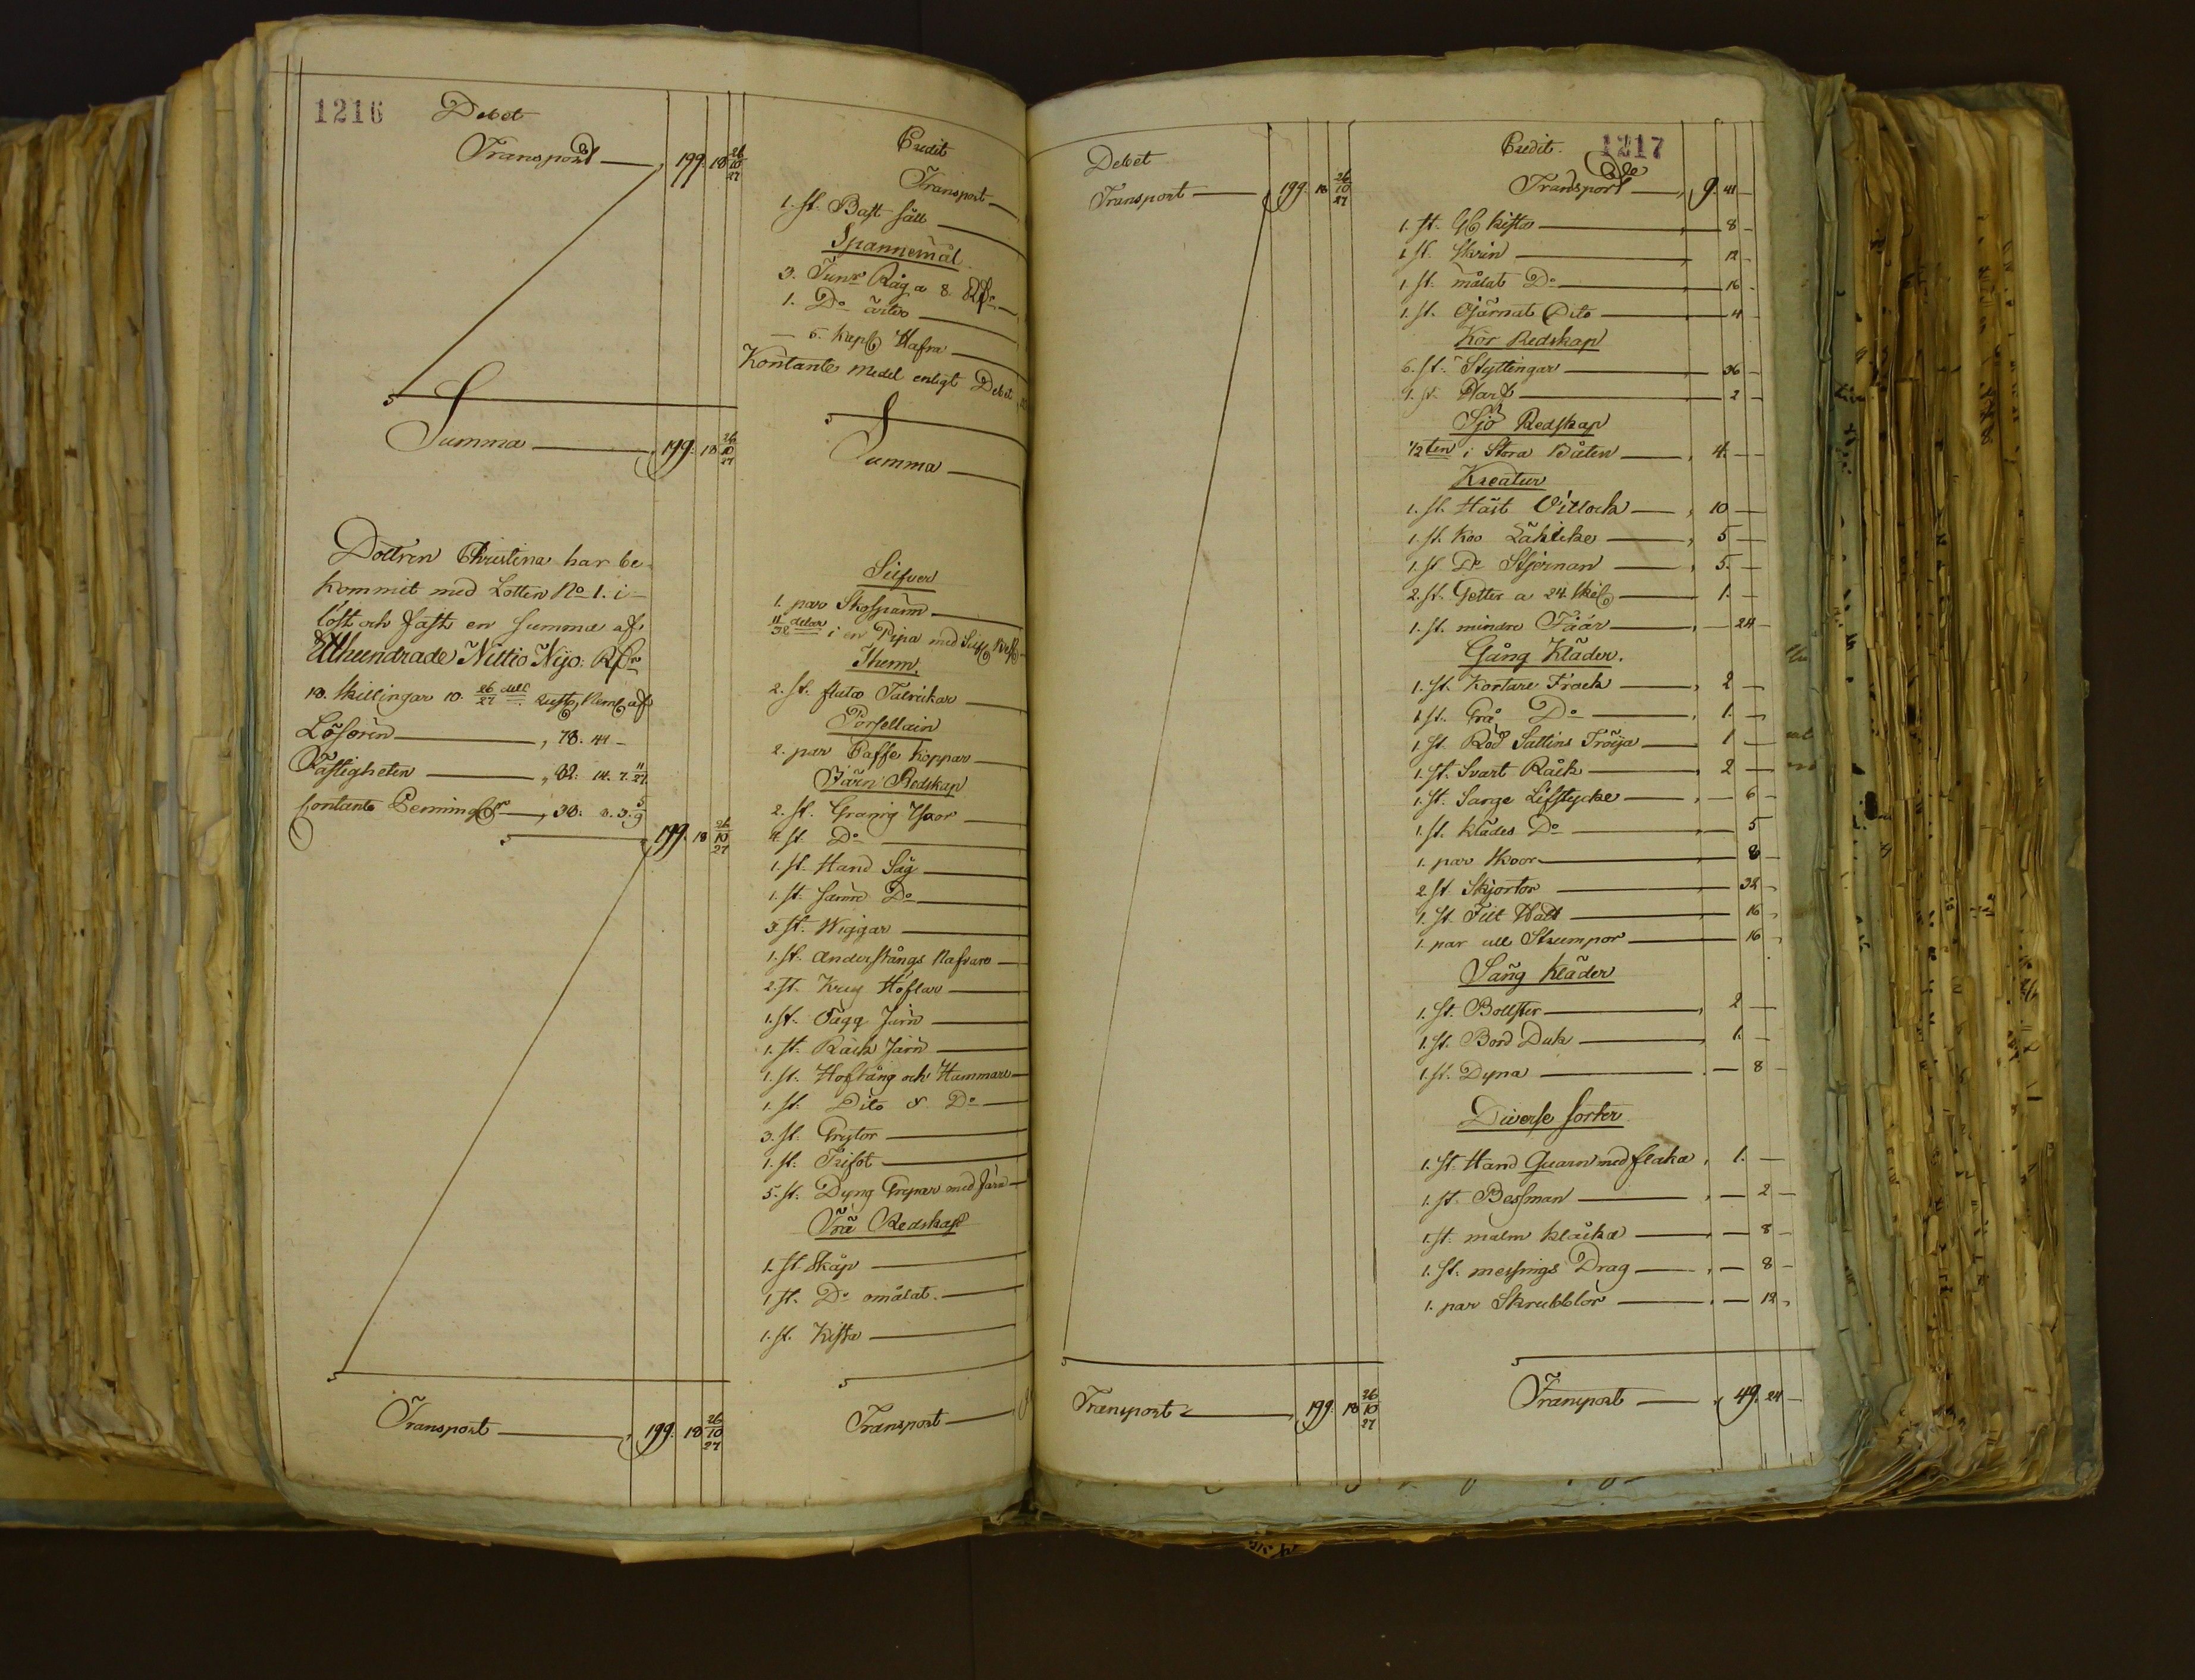 1216 Debet
Transport — 199. 18 26/10/27
Summa — 199. 18 26/10/27
Dottren Christina har be-
kommit med Lotten No 1. i
löst och fast en Summa af
Etthundrade Nittio Nijo: RDr
18. Skillingar 10 26/27 dell
Lösören — 78. 44 —
Fastigheten — 82. 14. 7. 11/27
Contante Penning — 38. 8. 3. 5/9
199. 18 26/10/27
Transport — 199. 18 26/10/27
Credit
Transport —
1. st. Bast Såll —
Spannemål
3. Tunr Råg a 8. RDr —
1. Do ärter —
— 6. Kap Hafra —
Kontante medel enligt Debet
Summa —
Silfver
1. par Skospänn —
11/32 delar i en Pipa med
Thenn
2. st. flata Talrickar —
Porsellain
2. par Caffe koppar —
Järn Redskap
2. st. Gräng Yxor —
4. st. Do —
1. st. Hand Såg —
1. st. Samre Do —
3. st. Wiggar —
1. st. Anderstångs Nafvare —
2. st. Krug Höflar —
1. st. Tagg Järn —
1. st. Räck Järn —
1. st. Hoftång och Hammare —
1. st. Dito & Do —
3. st. Grytor —
1. st. Trifot —
5. st. Dyng Grepar med Järn —
Trä Redskap
1. st Skåp —
1. st. Do omålat —
1. st. Kista —
Transport —
Debet
Transport — 199. 18 26/10/27
Transport — 199. 18 26/10/27
Credit. 1217
Transport — 9. 41 —
1. st. kista — 8 —
1. st. Skrin — 12 —
1. st. målat Do — 16 —
1. st. Ojärnat Dito — 4 —
Kör Redskap
6. st. Styttingar — 36 —
1. st. Harf — 2 —
Sjö Redskap
1/2ten i Stora Båten — 4. —
Kreatur
1. st. Häst — 10 —
1. st. Koo — 5 —
1. st Do Stjernan — 5. —
2. st. Getter a 24 Skil — 1. —
1. st. mindre Fåår — 24 —
Gång Kläder.
1. st. Kortare Frack — 2 —
1. st. Grå Do — 1. —
1. st. Röd Sattins Tröija — 1 —
1. st. Svart Råck — 2 —
1. st. Sarge Lifstycke — 6 —
1. st. klädes Do — 5
1. par Skoor — 8 —
2. st. Skjortor — 32 —
1. st. Filt Hatt — 16 —
1. par ull Strumpor — 16 —
Säng kläder
1. st. Bollster — 2 —
1. st. Bord Duk — 1. —
1. st. Dyna — 8 —
Diverse Sorter
1. st. Hand Quarn med flaka 1. —
1. st. Bessman — 2 —
1. st. malm klåcka — 8 —
1. st. messings Drag — 8 —
1. par Skrubblor — 12 —
Transport — 49. 24 —